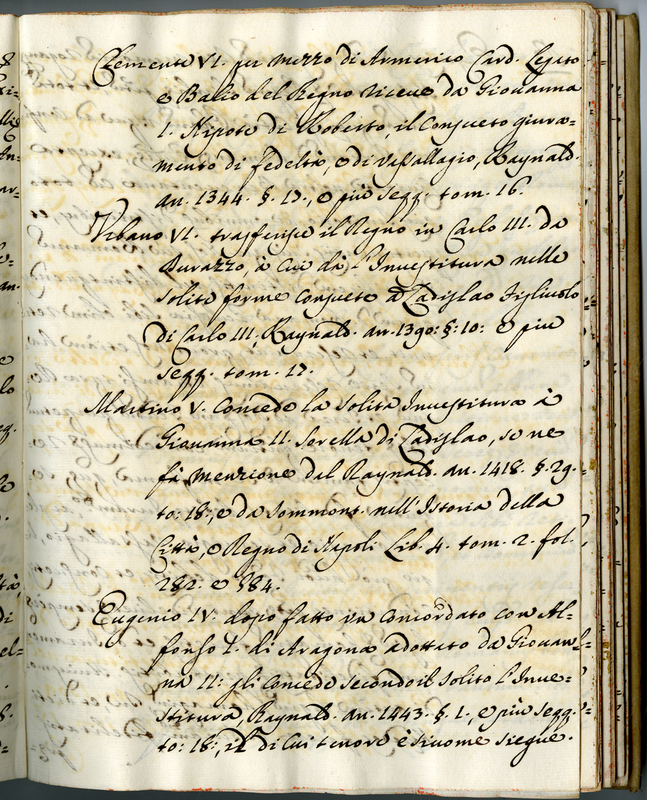 Clemente VI. per mezzo di Armerico Card. Legato
e Balio del Regno riceve da Giovanna
I. Nipote di Roberto, il consueto giura=
mento di fedeltà, e di vassallagio, Raynald.
an. 1344. §. 17., e più segg. tom. 16.
Urbano VI. trasferisce il Regno in Carlo III. da
Durazzo, à cui dà l'Investitura nelle
solite forme consuete à Ladislao Figliuolo
di Carlo III, Raynald. an. 1390: §: 10: e più
segg. tom. 17.
Martino V. Concede la solita Investitura à
Giovanna II. Sorella di Ladislao, se ne
fà menzione dal Raynald. an. 1418. §. 29.
to: 18:, e da Sommont. nell'Istoria della
Città, e Regno di Napoli Lib. 4. tom. 2. fol.
282. e 584.
Eugenio IV. dopo fatto un Concordato con Al=
fonso I. di Aragona adottato da Giovan=
na II: gli concede secondo il solito l'Inve=
stitura, Raynald. an. 1443. §. 1., e più segg.
to: 18:, il di cui tenore è sicome siegue.